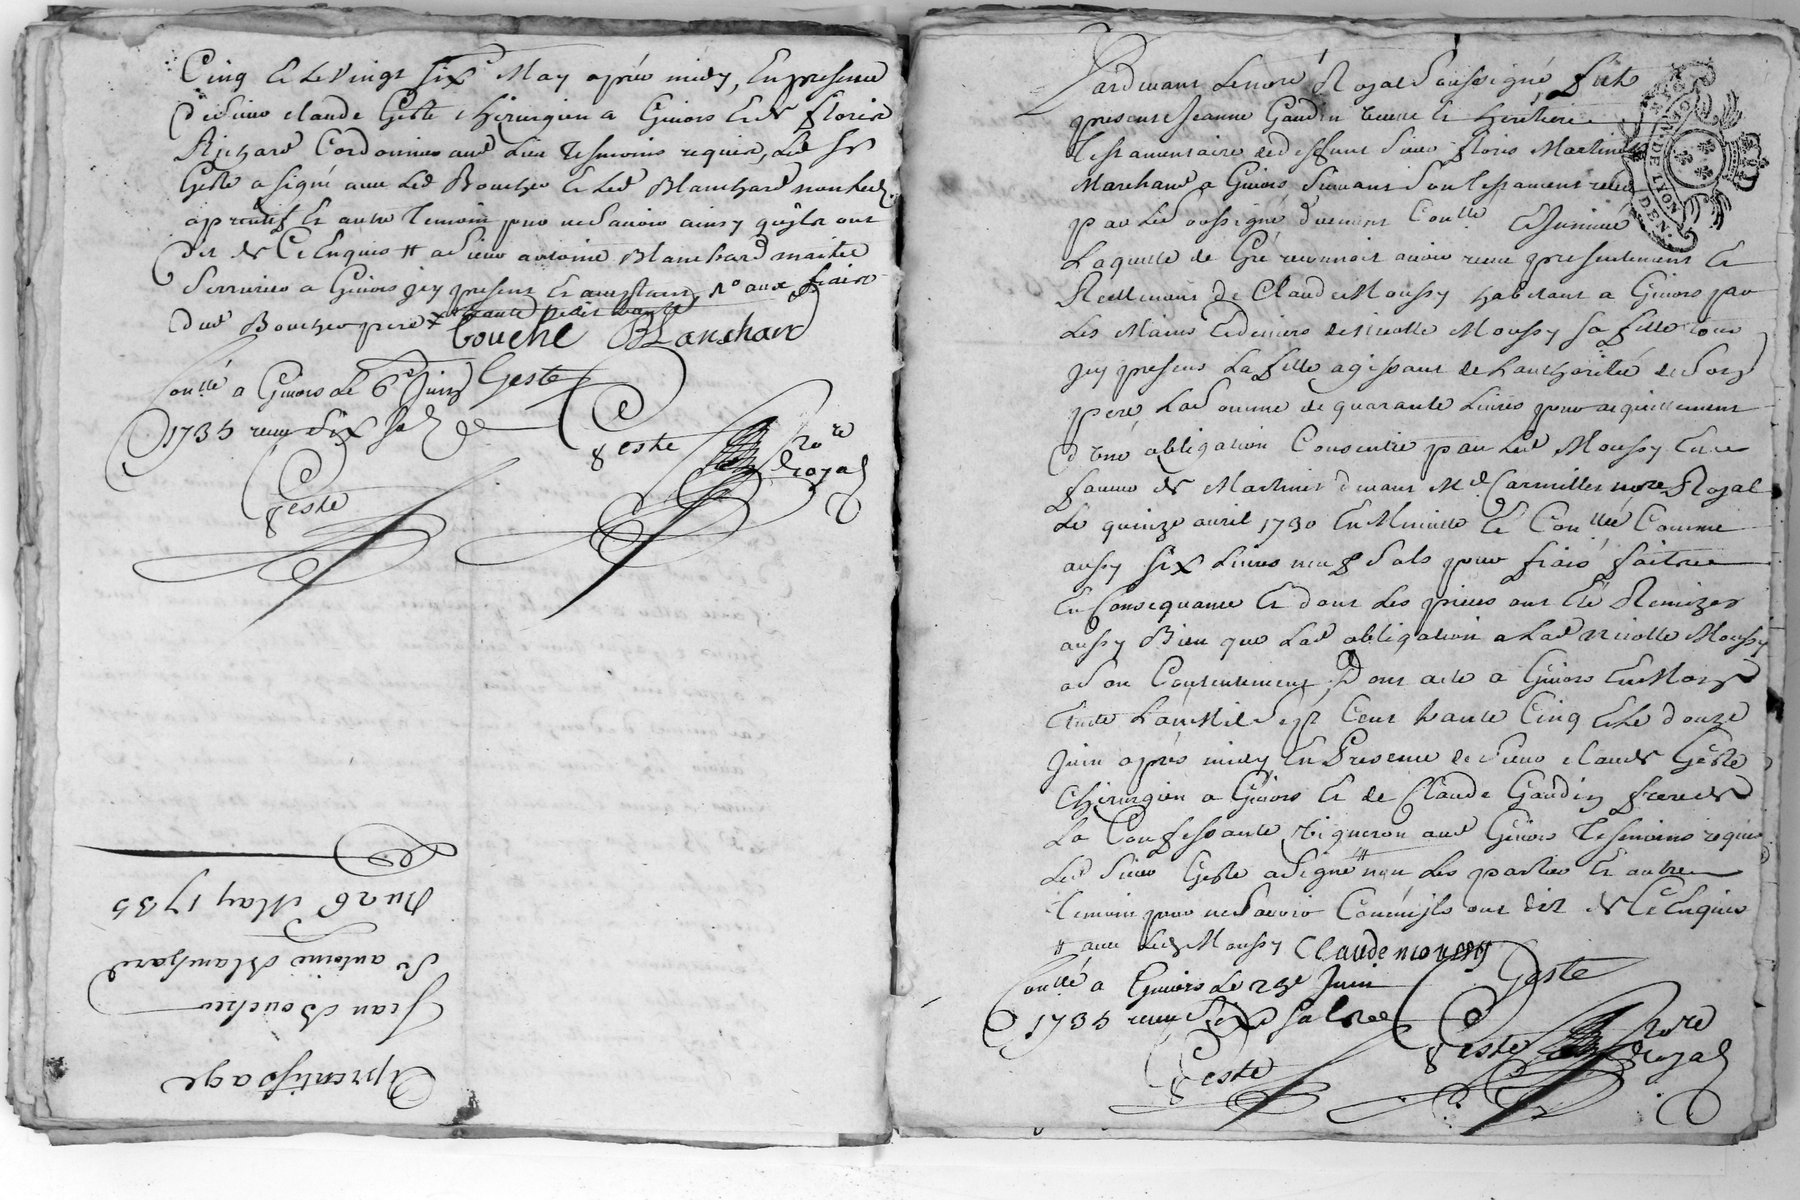 Cinq et le vingt six.e May après midy, En presence
de sieur claude Geste chirurgien a Givors et de floris
Richard Cordonnier aud. Lieu tesmoins requis, Led. Sr
Geste a signé avec Led. Boucher et Led. Blanchard non led.
aprentif et autre temoin pour ne savoir ainsy qu'ils ont
dit de ce Enquis # a sieur antoine Blanchard maitre
Serrurier a Givors icy present et acceptant, ro aux frais
dud. Boucher pere x trante petit trante
bouche Blanchard
Conllé a Givors le 6e Juin Geste
1735 reçu Six sols
Geste nore
Royal
Geste
Apprentissage
Jean Boucher
Sr antoine Blanchard
Du 26 May 1735
Pardevant Le nore Royal soussigné, fut
presente Jeanne Gaudin veuve et heritiere
testamentaire de deffunt sieur floris Martinier
Marchand a Givors suivant son testament receu
par Led. soussigné duement Conllé Et Insinué
GEN. DE LYON
Laquelle de Gré reconnoit avoir receu presentement et
Reellement de Claude Moussy habitant a Givors par
Les Mains et deniers de nicolle Moussy sa fille tous
icy presens La fille agissant de Lauthorité de son
pere La somme de quarante Livres pour acquittement
d'une obligation Consentie par Led. Moussy En
faveur de Martinier devant Me Carmilles nore Royal
Le quinze avril 1730 En Minutte Et Conllée Comme
aussy six Livres neuf sols pour frais faits
En Consequance et dont Les pieces ont Eté Remizes
aussy Bien que Lad. obligation a Lad. nicolle Moussy
a son Contentement, Dont acte a Givors En Mon
Etude L'an Mil sept Cent trante Cinq Et Le douze
Juin après midy En Presence de sieur claude Geste
Chirurgien a Givors et de Claude Gaudin frere de
La Confessante vigneron aud. Givors tesmoins requis
Led. sieur Geste a signé # non Les parties Et autre
temoin pour ne savoir Comm'ils ont dit de ce Enquis
# avec Led. Moussy Claude mousy
Conllé a Givors Le 23e Juin Geste
1735 reçu Six sols
Geste nore
Royal
Geste